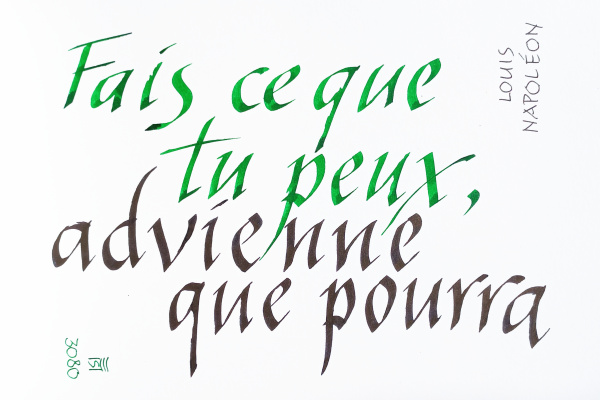 Fais ce que
tu peux,
advienne
que pourra
LOUIS
NAPOLÉON
3080